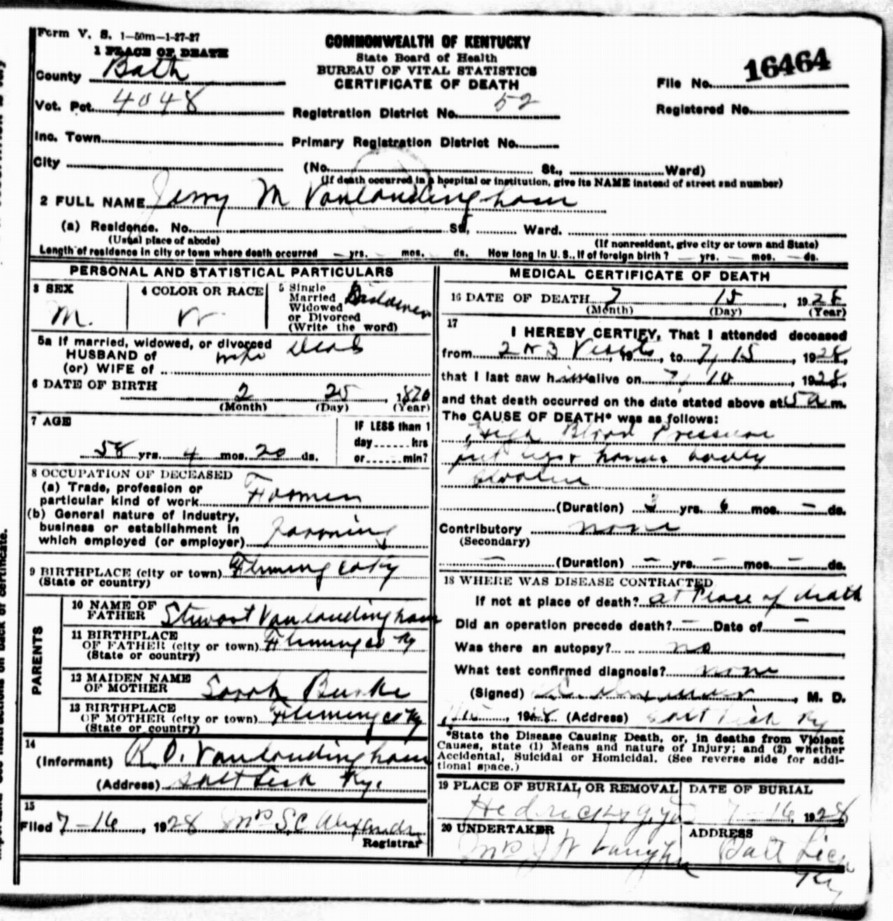 Form V. S. 1-50m-1-27-27
COMMONWEALTH OF KENTUCKY
State Board of Health
BUREAU OF VITAL STATISTICS
CERTIFICATE OF DEATH
1 PLACE OF DEATH
County Bath
File No. 16464
Vot. Pct. 4048
Registration District No. 52
Registered No.
Inc. Town
Primary Registration District No.
City
(No. St., Ward)
(If death occurred in a hospital or institution, give its NAME instead of street and number)
2 FULL NAME Jerry M Vanlandingham
(a) Residence. No. St., Ward.
(Usual place of abode)
(If nonresident, give city or town and State)
Length of residence in city or town where death occurred yrs. mos. ds. How long in U. S., if of foreign birth? yrs. mos. ds.
PERSONAL AND STATISTICAL PARTICULARS
3 SEX
M.
4 COLOR OR RACE
W
5 Single
Married
Widowed
or Divorced
(Write the word)
5a If married, widowed, or divorced
HUSBAND of
(or) WIFE of wife Dead
6 DATE OF BIRTH
2 25, 1870
(Month) (Day) (Year)
7 AGE
58 yrs. 4 mos. 20 ds.
IF LESS than 1
day hrs
or min?
8 OCCUPATION OF DECEASED
(a) Trade, profession or
particular kind of work Farmer
(b) General nature of industry,
business or establishment in
which employed (or employer) Farming
9 BIRTHPLACE (city or town) Fleming co Ky
(State or country)
PARENTS
10 NAME OF
FATHER Stewart Vanlandingham
11 BIRTHPLACE
OF FATHER (city or town) Fleming co Ky
(State or country)
12 MAIDEN NAME
OF MOTHER Sarah Burke
13 BIRTHPLACE
OF MOTHER (city or town) Fleming co Ky
(State or country)
14
(Informant) R. D. Vanlandingham
(Address) Salt Lick Ky.
15
Filed 7-16, 1928 Mrs S.C. Alexander
Registrar
MEDICAL CERTIFICATE OF DEATH
16 DATE OF DEATH 7 15, 1928
(Month) (Day) (Year)
17
I HEREBY CERTIFY, That I attended deceased
from 2 or 3 Visits, to 7, 15, 1928,
that I last saw him alive on 7, 10, 1928,
and that death occurred on the date stated above at 5 a m.
The CAUSE OF DEATH* was as follows:
High Blood Pressure
(Duration) yrs. 6 mos. - ds.
Contributory none
(Secondary)
(Duration) - yrs. - mos. - ds.
18 WHERE WAS DISEASE CONTRACTED
If not at place of death? at Place of death
Did an operation precede death? - Date of -
Was there an autopsy? no
What test confirmed diagnosis? none
(Signed) , M. D.
, 1928 (Address) Salt Lick Ky
*State the Disease Causing Death, or, in deaths from Violent
Causes, state (1) Means and nature of Injury; and (2) whether
Accidental, Suicidal or Homicidal. (See reverse side for addi-
tional space.)
19 PLACE OF BURIAL OR REMOVAL
DATE OF BURIAL
7-16, 1928
20 UNDERTAKER
ADDRESS
Salt Lick
Ky